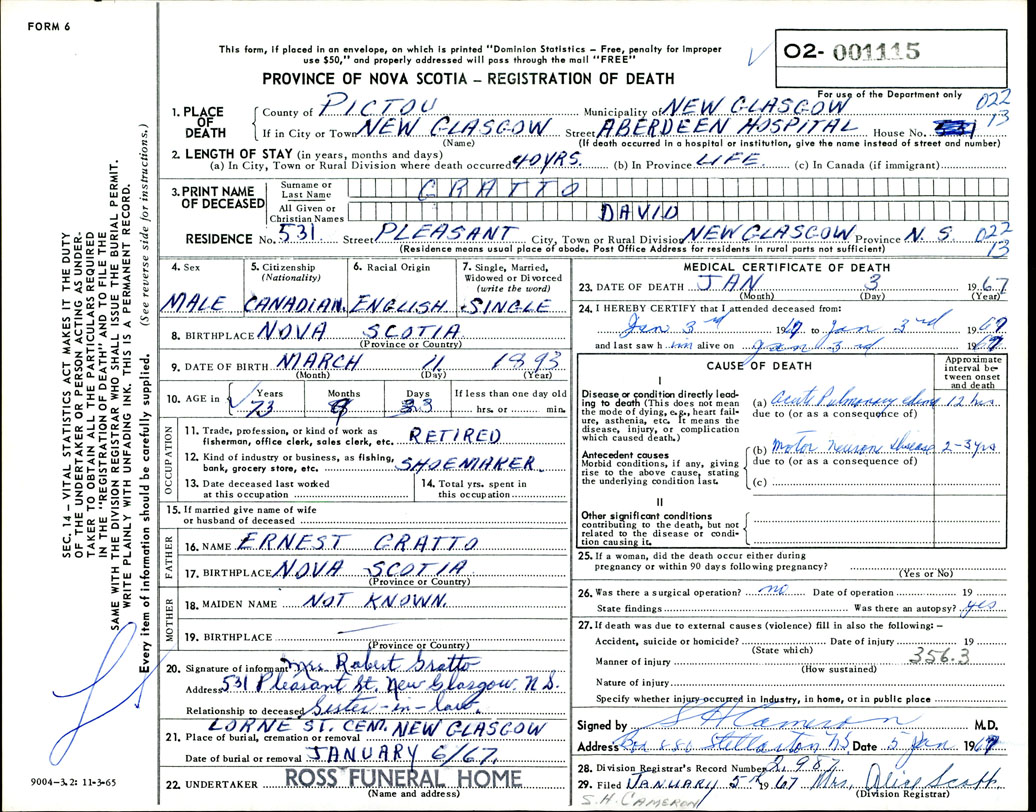 FORM 6
This form, if placed in an envelope, on which is printed "Dominion Statistics – Free, penalty for improper
use $50," and properly addressed will pass through the mail "FREE"
O2- 001115
PROVINCE OF NOVA SCOTIA – REGISTRATION OF DEATH
For use of the Department only
022
13
1. PLACE OF DEATH
County of PICTOU Municipality of NEW GLASGOW
If in City or Town NEW GLASGOW Street ABERDEEN HOSPITAL House No.
(Name) (If death occurred in a hospital or institution, give the name instead of street and number)
2. LENGTH OF STAY (in years, months and days)
(a) In City, Town or Rural Division where death occurred 40 YRS. (b) In Province LIFE (c) In Canada (if immigrant)
3. PRINT NAME OF DECEASED
Surname or Last Name GRATTO
All Given or Christian Names DAVID
RESIDENCE No. 531 Street PLEASANT City, Town or Rural Division NEW GLASGOW Province N.S. 022
13
(Residence means usual place of abode. Post Office Address for residents in rural parts not sufficient)
4. Sex
MALE
5. Citizenship
(Nationality)
CANADIAN
6. Racial Origin
ENGLISH
7. Single, Married,
Widowed or Divorced
(write the word)
SINGLE
8. BIRTHPLACE NOVA SCOTIA
(Province or Country)
9. DATE OF BIRTH MARCH 11 1893
(Month) (Day) (Year)
10. AGE in
Years Months Days If less than one day old
73 9 23 hrs. or min.
OCCUPATION
11. Trade, profession, or kind of work as
fisherman, office clerk, sales clerk, etc. RETIRED
12. Kind of industry or business, as fishing,
bank, grocery store, etc. SHOEMAKER
13. Date deceased last worked
at this occupation
14. Total yrs. spent in
this occupation
15. If married give name of wife
or husband of deceased
FATHER
16. NAME ERNEST GRATTO
17. BIRTHPLACE NOVA SCOTIA
(Province or Country)
MOTHER
18. MAIDEN NAME NOT KNOWN.
19. BIRTHPLACE —
(Province or Country)
20. Signature of informant Mrs Robert Gratto
Address 531 Pleasant St. New Glasgow, N.S.
Relationship to deceased Sister-in-law
LORNE ST. CEM. NEW GLASGOW
21. Place of burial, cremation or removal
Date of burial or removal JANUARY 6/67.
22. UNDERTAKER ROSS FUNERAL HOME
(Name and address)
MEDICAL CERTIFICATE OF DEATH
23. DATE OF DEATH JAN 3 1967
(Month) (Day) (Year)
24. I HEREBY CERTIFY that I attended deceased from:
Jan 3rd 1967 to Jan 3rd 1967
and last saw him alive on Jan 3rd 1967
CAUSE OF DEATH
Approximate
interval be-
tween onset
and death
I
Disease or condition directly lead-
ing to death (This does not mean
the mode of dying, e.g., heart fail-
ure, asthenia, etc. It means the
disease, injury, or complication
which caused death.)
(a) Acute Pulmonary edema 12 hrs
due to (or as a consequence of)
Antecedent causes
Morbid conditions, if any, giving
rise to the above cause, stating
the underlying condition last.
(b) Motor Neurone disease 2-3 yrs
due to (or as a consequence of)
(c)
II
Other significant conditions
contributing to the death, but not
related to the disease or condi-
tion causing it.
25. If a woman, did the death occur either during
pregnancy or within 90 days following pregnancy?
(Yes or No)
26. Was there a surgical operation? no Date of operation 19
State findings Was there an autopsy? yes
27. If death was due to external causes (violence) fill in also the following: –
Accident, suicide or homicide? Date of injury 19
(State which)
356.3
Manner of injury
(How sustained)
Nature of injury
Specify whether injury occurred in Industry, in home, or in public place
Signed by S H Cameron M.D.
Address Box 880 Stellarton NS Date 5 Jan 1967
28. Division Registrar's Record Number 2,987
29. Filed JANUARY 5th 1967 Mrs. Alice Scott
(Division Registrar)
S.H. CAMERON
SEC. 14 – VITAL STATISTICS ACT MAKES IT THE DUTY
OF THE UNDERTAKER OR PERSON ACTING AS UNDER-
TAKER TO OBTAIN ALL THE PARTICULARS REQUIRED
IN THE "REGISTRATION OF DEATH" AND TO FILE THE
SAME WITH THE DIVISION REGISTRAR WHO SHALL ISSUE THE BURIAL PERMIT.
WRITE PLAINLY WITH UNFADING INK. THIS IS A PERMANENT RECORD.
Every item of information should be carefully supplied. (See reverse side for instructions.)
9004–3.2: 11-3-65